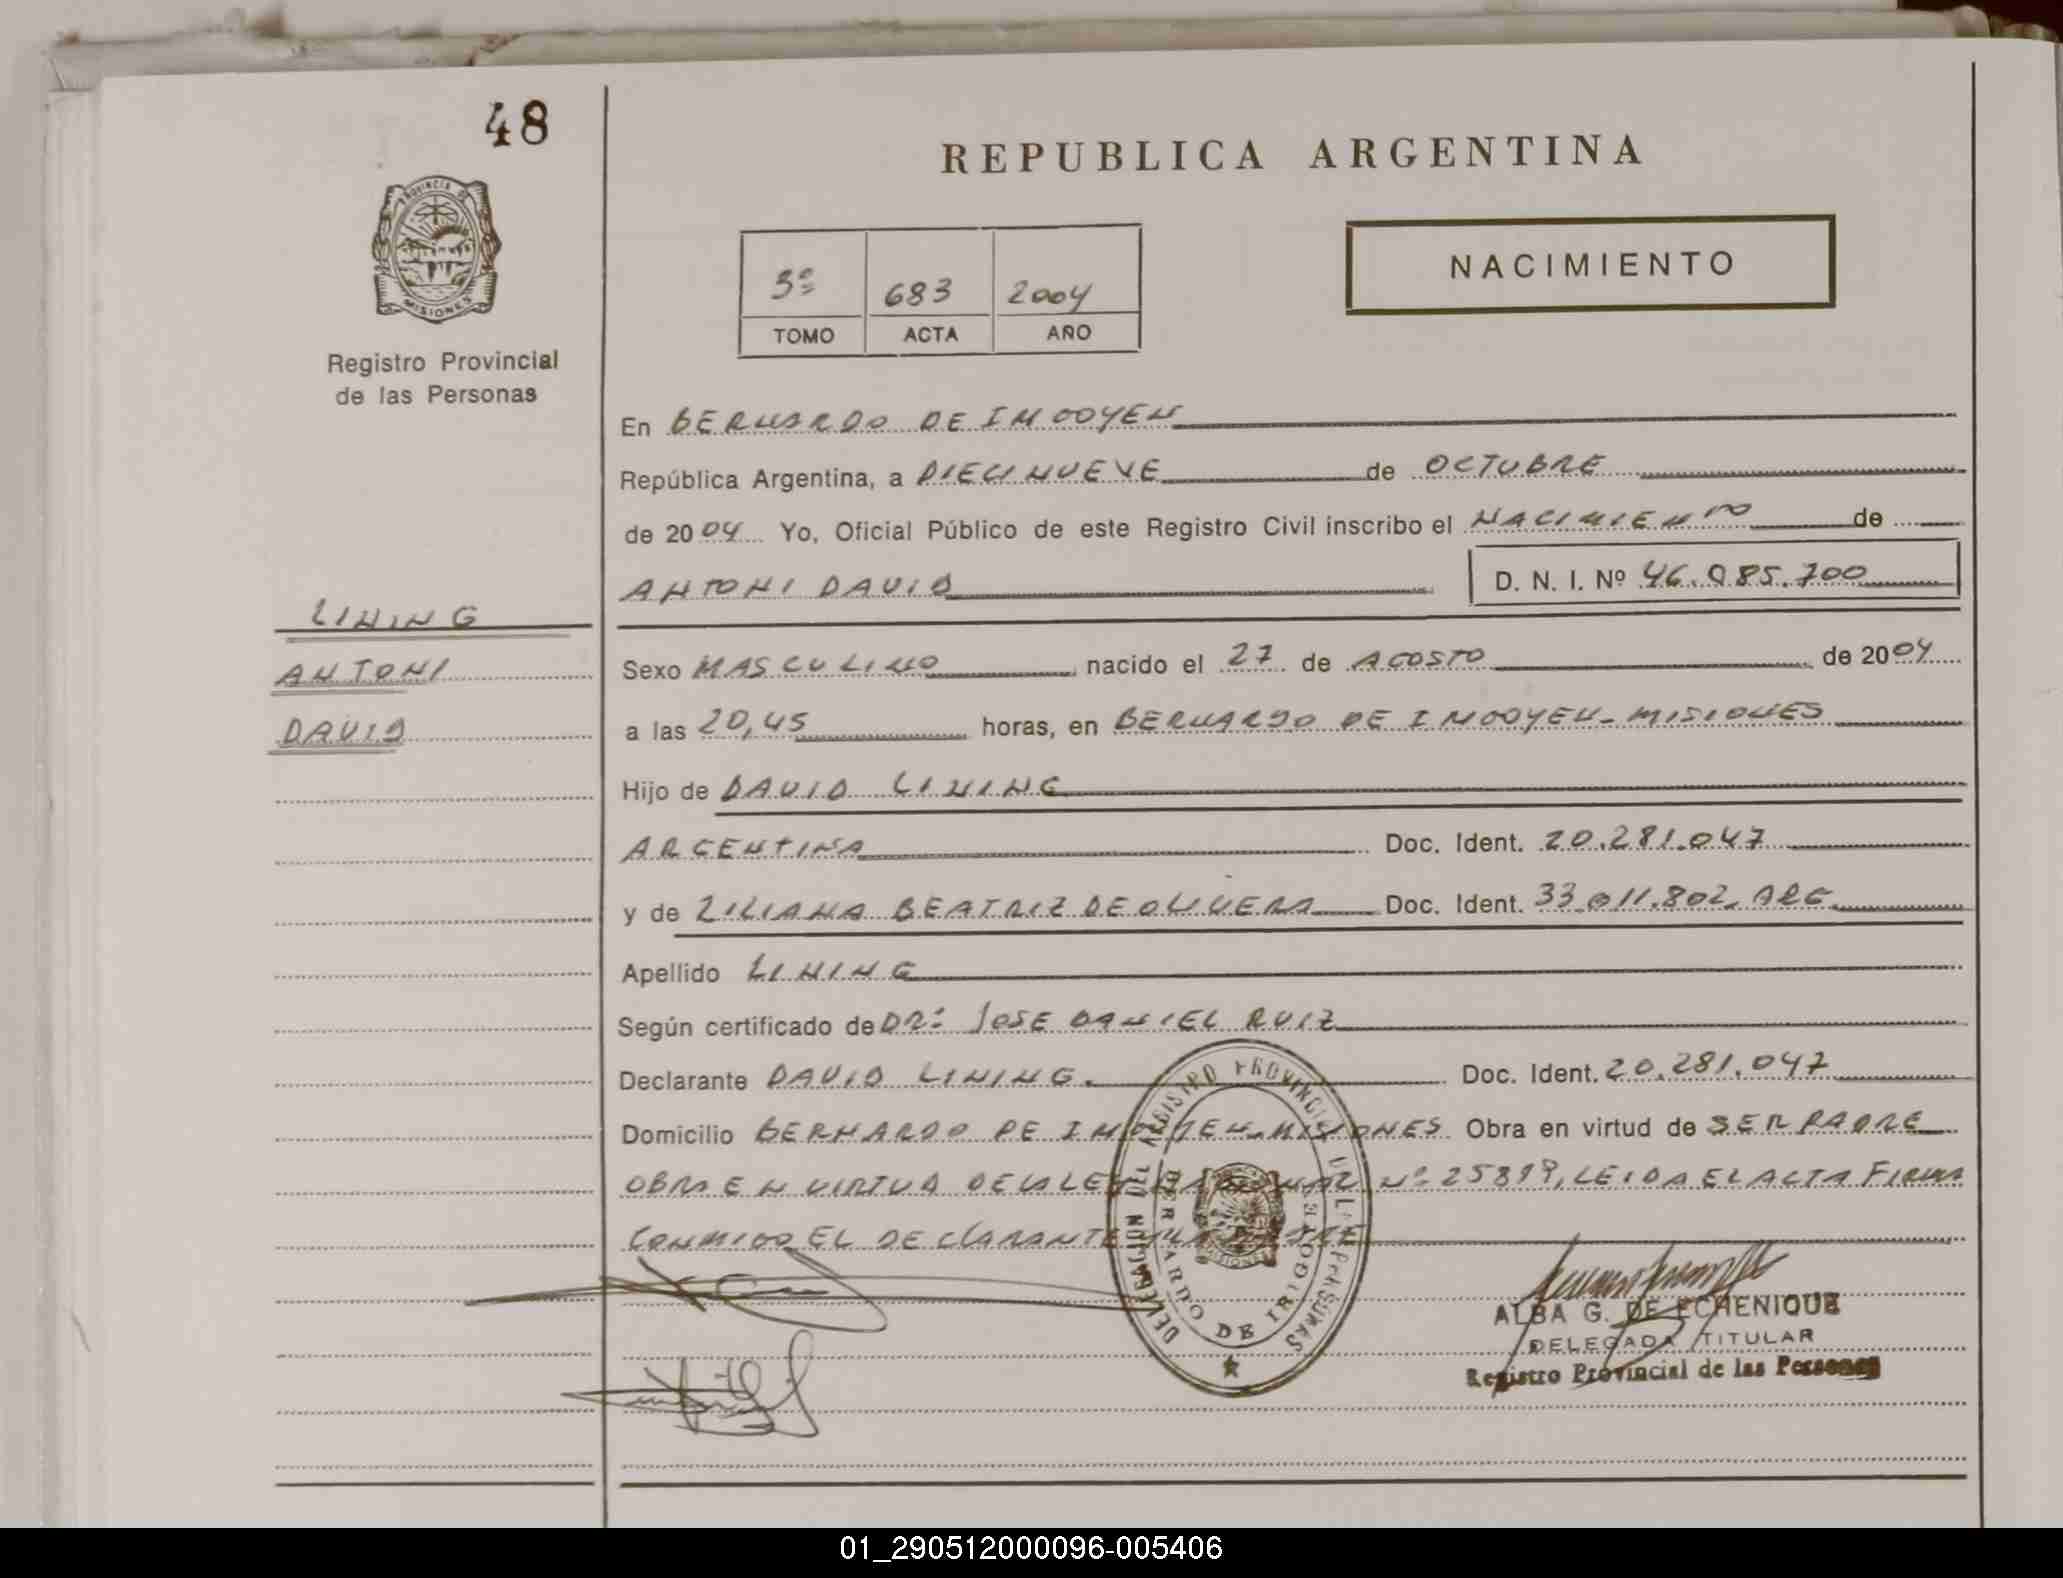 48
REPUBLICA ARGENTINA
PROVINCIA DE
MISIONES
Registro Provincial
de las Personas
NACIMIENTO
3º 683 2004
TOMO ACTA AÑO
En BERNARDO DE IRIGOYEN
República Argentina, a DIECINUEVE de OCTUBRE
de 2004 Yo, Oficial Público de este Registro Civil inscribo el NACIMIENTO de
ANTONI DAVID D. N. I. Nº 46.085.700
LINING
ANTONI
DAVID
Sexo MASCULINO, nacido el 27 de AGOSTO, de 2004
a las 20,45 horas, en BERNARDO DE IRIGOYEN - MISIONES
Hijo de DAVID LINING
ARGENTINA Doc. Ident. 20.281.047
y de LILIANA BEATRIZ DE OLIVERA Doc. Ident. 33.011.802 ARG.
Apellido LINING
Según certificado de DR: JOSE DANIEL RUIZ
Declarante DAVID LINING. Doc. Ident. 20.281.047
Domicilio BERNARDO DE IRIGOYEN-MISIONES Obra en virtud de SER PADRE
OBRA EN VIRTUD DE LA LEY Nº 25819, LEIDA EL ACTA FIRMA
CONMIGO EL DECLARANTE
DELEGACION DEL REGISTRO PROVINCIAL DE LAS PERSONAS
BERNARDO DE IRIGOYEN
MISIONES
ALBA G. DE ECHENIQUE
DELEGADA TITULAR
Registro Provincial de las Personas
01_290512000096-005406